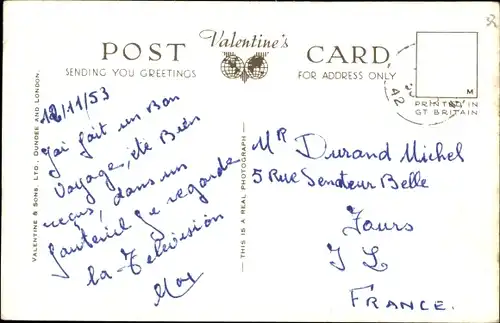 POST Valentine's CARD
SENDING YOU GREETINGS
FOR ADDRESS ONLY
M
PRINTED IN
GT BRITAIN
42
VALENTINE & SONS, LTD., DUNDEE AND LONDON.
12/11/53
J'ai fait un Bon
Voyage, été Bien
reçus, dans un
fauteuil je regarde
la Télévision
THIS IS A REAL PHOTOGRAPH
Mr Durand Michel
5 Rue Senateur Belle
I L
FRANCE.